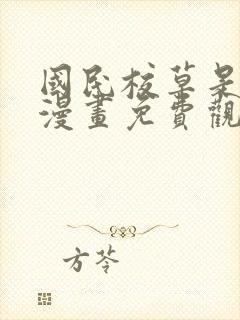 國民校草是
漫畫免費觀
方苓